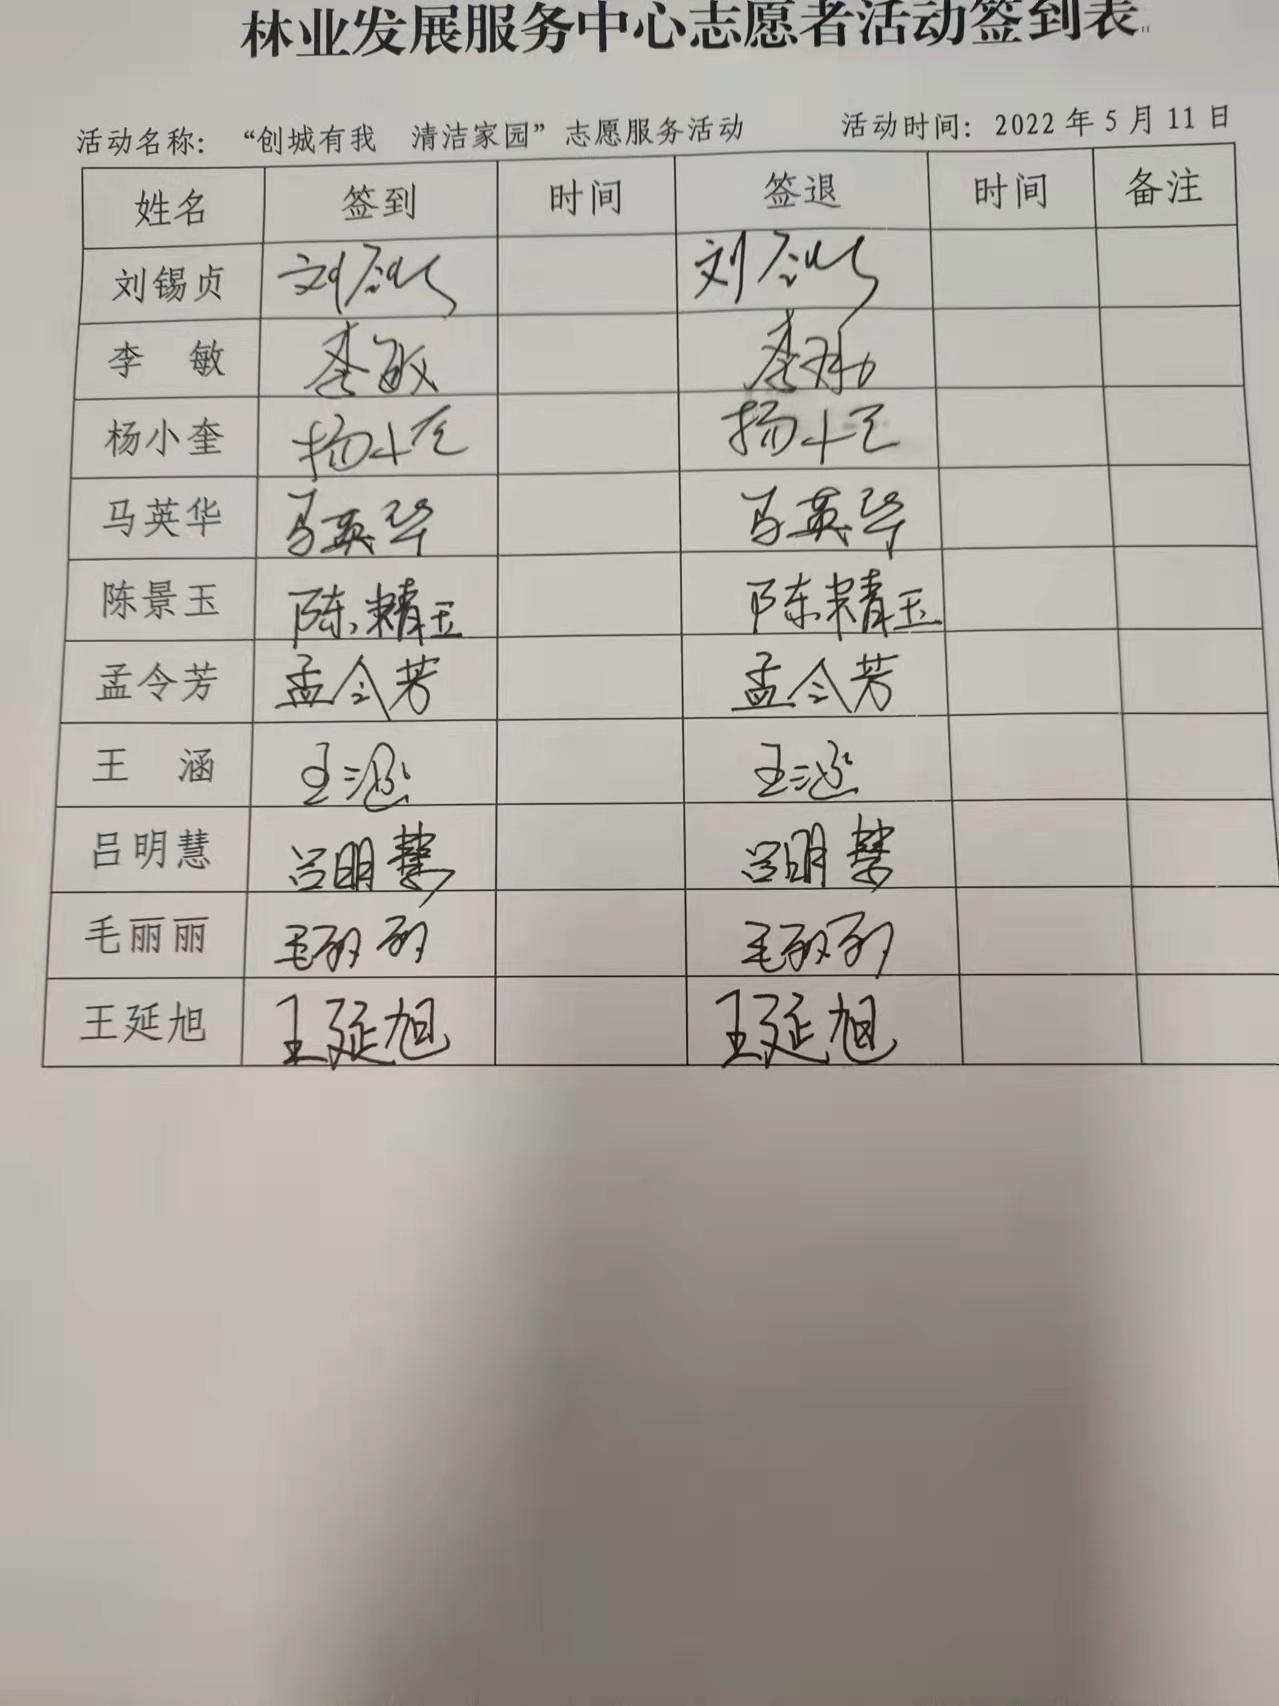 林业发展服务中心志愿者活动签到表
活动名称：“创城有我　清洁家园”志愿服务活动　活动时间：2022年5月11日
姓名 签到 时间 签退 时间 备注
刘锡贞 刘 刘
李　敏 李敏 李敏
杨小奎 杨小奎 杨小奎
马英华 马英华 马英华
陈景玉 陈精玉 陈精玉
孟令芳 孟令芳 孟令芳
王　涵 王涵 王涵
吕明慧 吕明慧 吕明慧
毛丽丽 毛丽丽 毛丽丽
王延旭 王延旭 王延旭